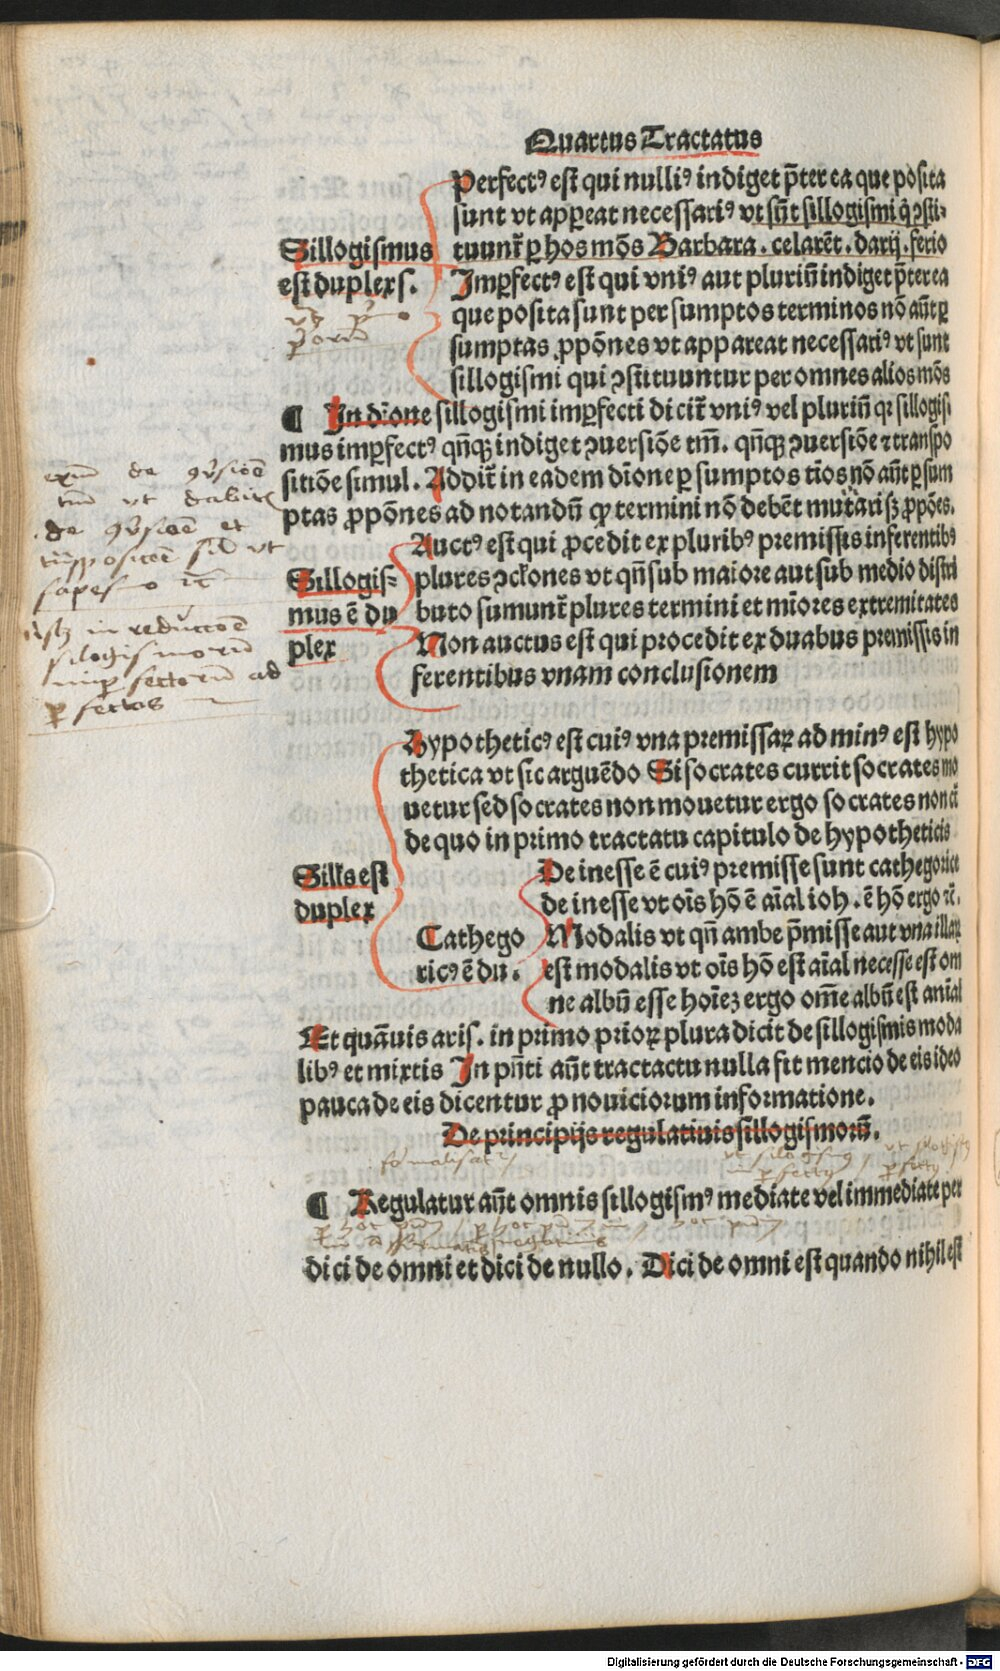 Quartus Tractatus
Perfectꝰ est qui nulliꝰ indiget p̄ter ea que posita
sunt vt apꝑeat necessariꝰ vt sūt sillogismi q̇ ꝯsti-
Sillogismus tuunt̄ ꝑ hos mōs Barbara. celarēt. darij. ferio
est duplexs. Imꝑfectꝰ est qui vniꝰ aut pluriū indiget p̄ter ea
que posita sunt per sumptos terminos nō aūt ꝑ
sumptas ꝓpōnes vt appareat necessariꝰ vt sunt
sillogismi qui ꝯstituuntur per omnes alios mōs
¶ In dīone sillogismi imꝑfecti dicit̄ vniꝰ vel pluriū qꝛ sillogis
mus imꝑfectꝰ qn̄qꝫ indiget ꝯuersiōe tm̄. qn̄qꝫ ꝯuersiōe ⁊ transpo
sitiōe simul. Addit̄ in eadem dīone ꝑ sumptos tīos nō aūt ꝑ sum
ptas ꝓpōnes ad notandū ꝙ termini nō debēt mutari sꝫ ꝓpōes.
Auctꝰ est qui ꝓcedit ex pluribꝰ premissis inferentibꝰ
Sillogis- plures ꝯclōnes vt qn̄ sub maiore aut sub medio distri
mus ē du buto sumunt̄ plures termini et mīores extremitates
plex Non auctus est qui procedit ex duabus premissis in
ferentibus vnam conclusionem
Hypotheticꝰ est cuiꝰ vna premissaꝝ ad minꝰ est hypo
thetica vt sic arguēdo Si socrates currit socrates mo
uetur sed socrates non mouetur ergo socrates non
de quo in primo tractatu capitulo de hypotheticis
Sillꝰs est De inesse ē cuiꝰ premisse sunt cathegorice
duplex de inesse vt oīs hō ē aīal ioh. ē hō ergo ⁊c̄.
Cathego Modalis vt qn̄ ambe p̄misse aut vna illaꝝ
ricꝰ ē du. est modalis vt oīs hō est aīal necesse est om
ne albū esse hoīeꝫ ergo om̄e albū est anīal
Et quāuis aris. in primo prioꝝ plura dicit de sillogismis moda
libꝰ et mixtis In pn̄ti aūt tractactu nulla fit mencio de eis ideo
pauca de eis dicentur ꝓ nouiciorum informatione.
De principijs regulatiuis sillogismorū.
¶ Regulatur aūt omnis sillogismꝰ mediate vel immediate per
dici de omni et dici de nullo. Dici de omni est quando nihil est
Digitalisierung gefördert durch die Deutsche Forschungsgemeinschaft - DFG